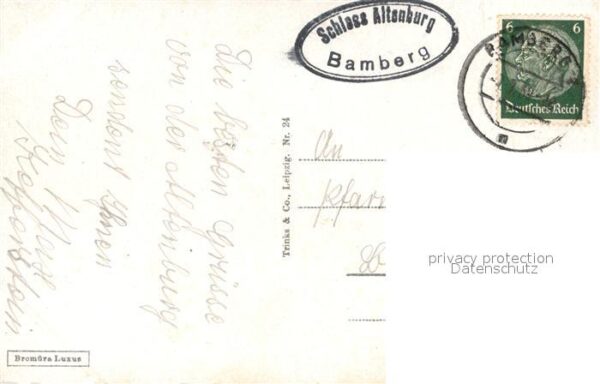 Schloss Altenburg
Bamberg
6 6
BAMBERG
Deutsches Reich
Die besten Grüsse
von der Altenburg
sendent Ihnen
Dein
Trinks & Co., Leipzig. Nr. 24
An
Pfar
privacy protection
Datenschutz
Bromüra Luxus